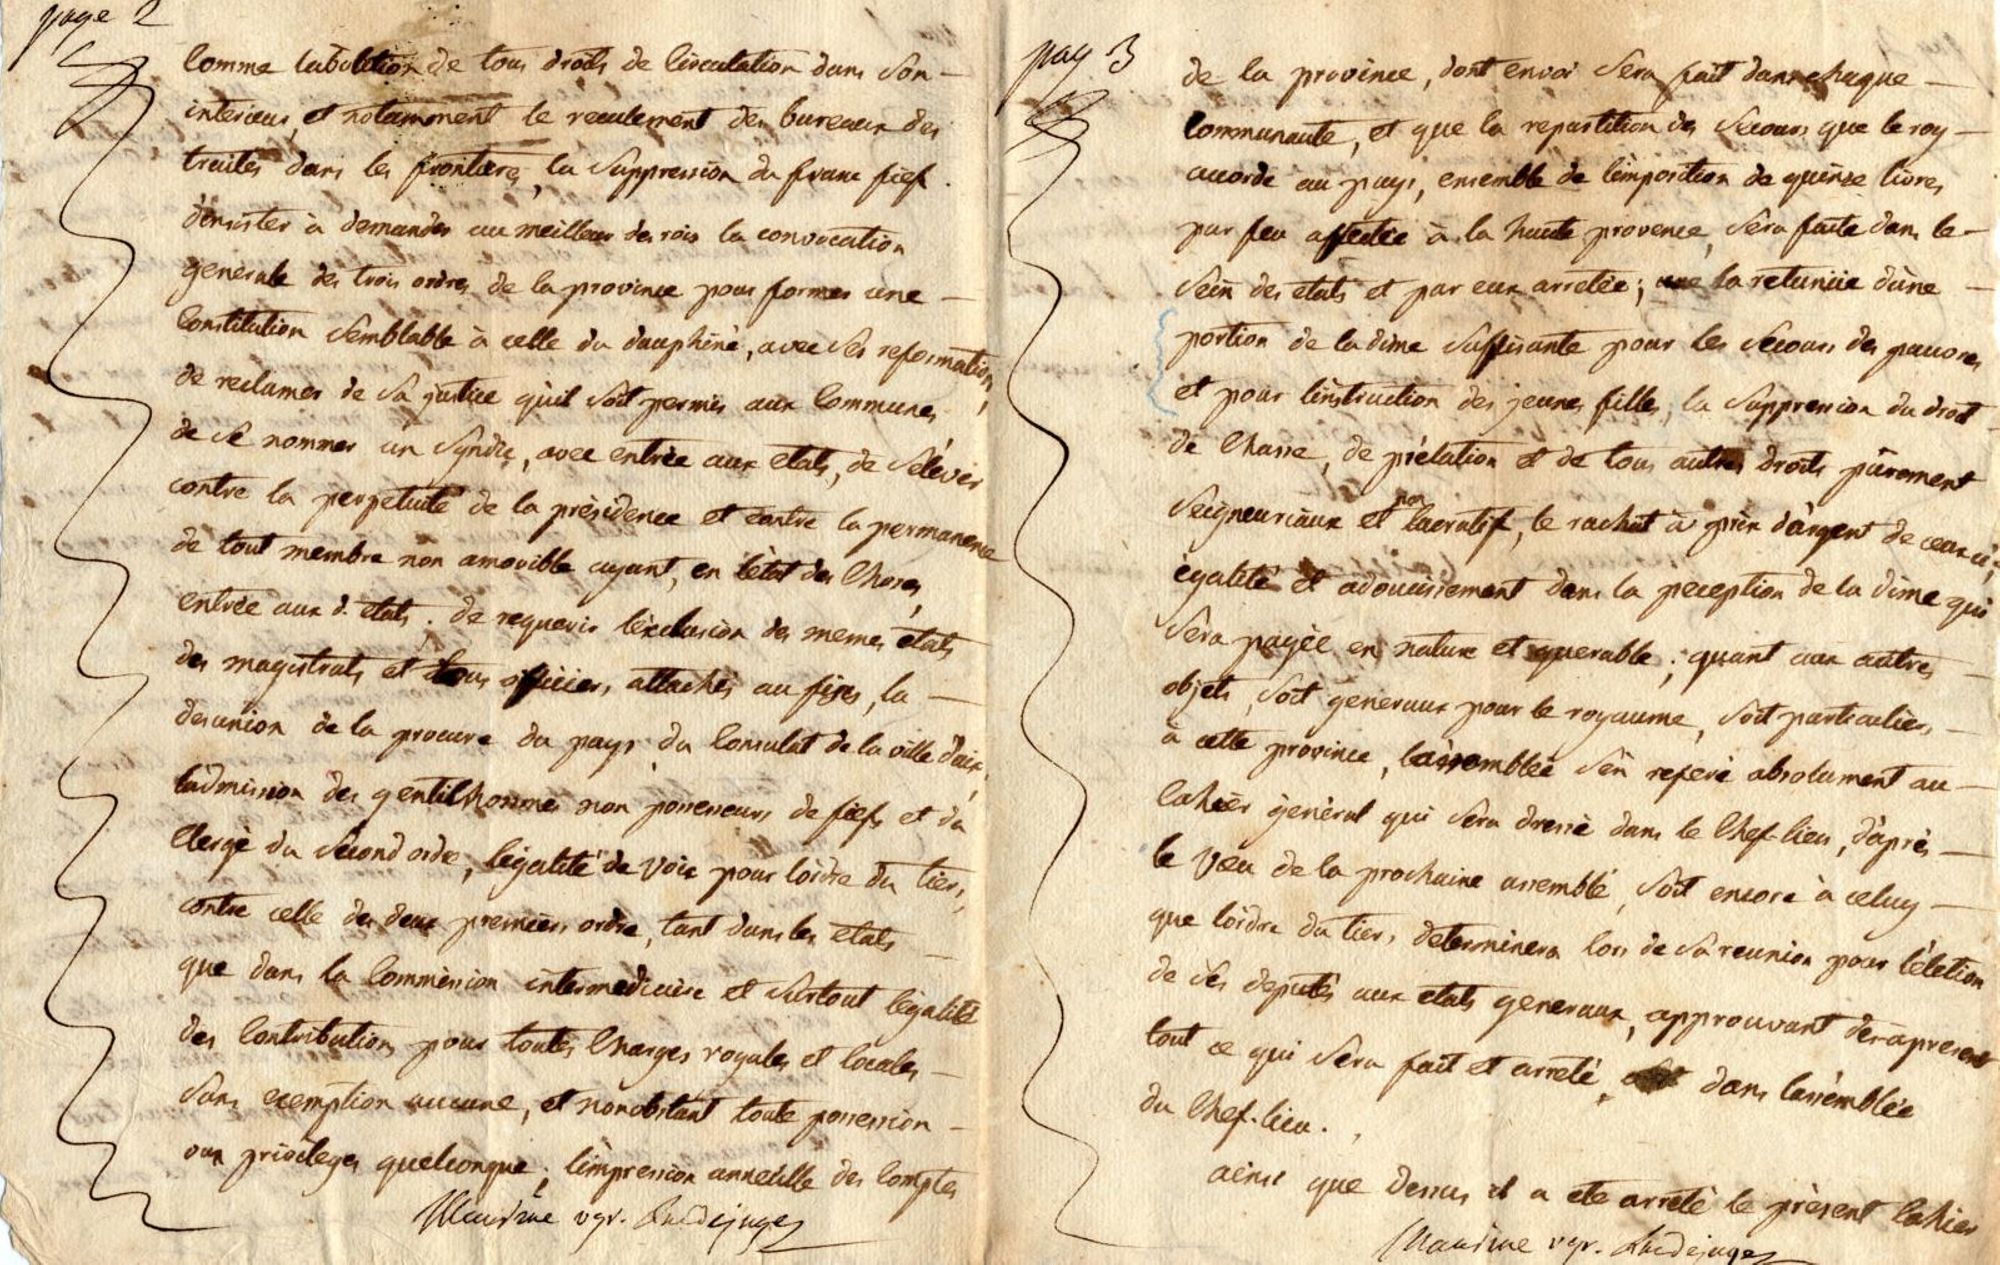 page 2
Comme labolition de tous droits de Circulation dans Son
interieur, et notamment le reculement des bureaux des
traites dans les frontieres, la Suppression du franc fief
dinsister à demander au meilleur des rois la convocation
generale des trois ordres de la province pour former une
Constitution Semblable à celle du dauphiné, avec Ses reformations,
de reclamer de Sa justice quil Soit permis aux Communes
de Se nommer un Syndic, avec entrée aux etats, de Sélever
contre la perpetuité de la présidence et contre la permanence
de tout membre non amovible ayant, en létat des Choses,
entrée aux d. etats. de requerir léxclusion des memes états
des magistrats et tous officiers attachés au fisc, la
desunion de la procure du pays du Consulat de la ville daix,
ladmission des gentilhommes non possesseurs de fiefs et du
Clergé du Second ordre, légalité de Voix pour lórdre du tiers,
contre celle des deux premiers ordre, tant dans les etats
que dans la Commission intermediaire et Surtout légalité
des Contributions pour toutes Charges royales et locales
Sans exemption aucune, et nonobstant toute possession
oux privileges quelconque; limpression annuelle des Comptes
vgr.
pag 3
de la province, dont envoi Sera fait dans chaque
Communauté, et que la repartition des Secours que le roy
accorde au pays, ensemble de limposition de quinse livres
par feu affectée à la haute provence, Sera faite dans le
Sein des etats et par eux arretée; la retenüe düne
portion de la dime Suffisante pour les Secours des pauvres
et pour linstruction des jeunes filles, la Suppression du droit
de Chasse, de prélation et de tous autres droits pûrement
Seigneuriaux et non lucratif, le rachat à prix dárgent de ceux ci;
égalité et adoucissement dans la peception de la dime qui
Sera payée en nature et querable; quant aux autres
objets, Soit generaux pour le royaume, Soit particuliers,
à cette province, lassemblée Sén referé absolument au
Cahiér général qui Sera dressé dans le Chef-lieu, dáprés
le Vœu de la prochaine assemblé, Soit encore à celuy
que lórdre du tiers determinera lors de Sa reunion pour léletion
de Ses deputés aux etats generaux, approuvant dèsapresent
tout ce qui Sera fait et arreté, dans lassémblée
du Chef-lieu.
ainsi que dessus il a ete arreté le présent Cahier
vgr.